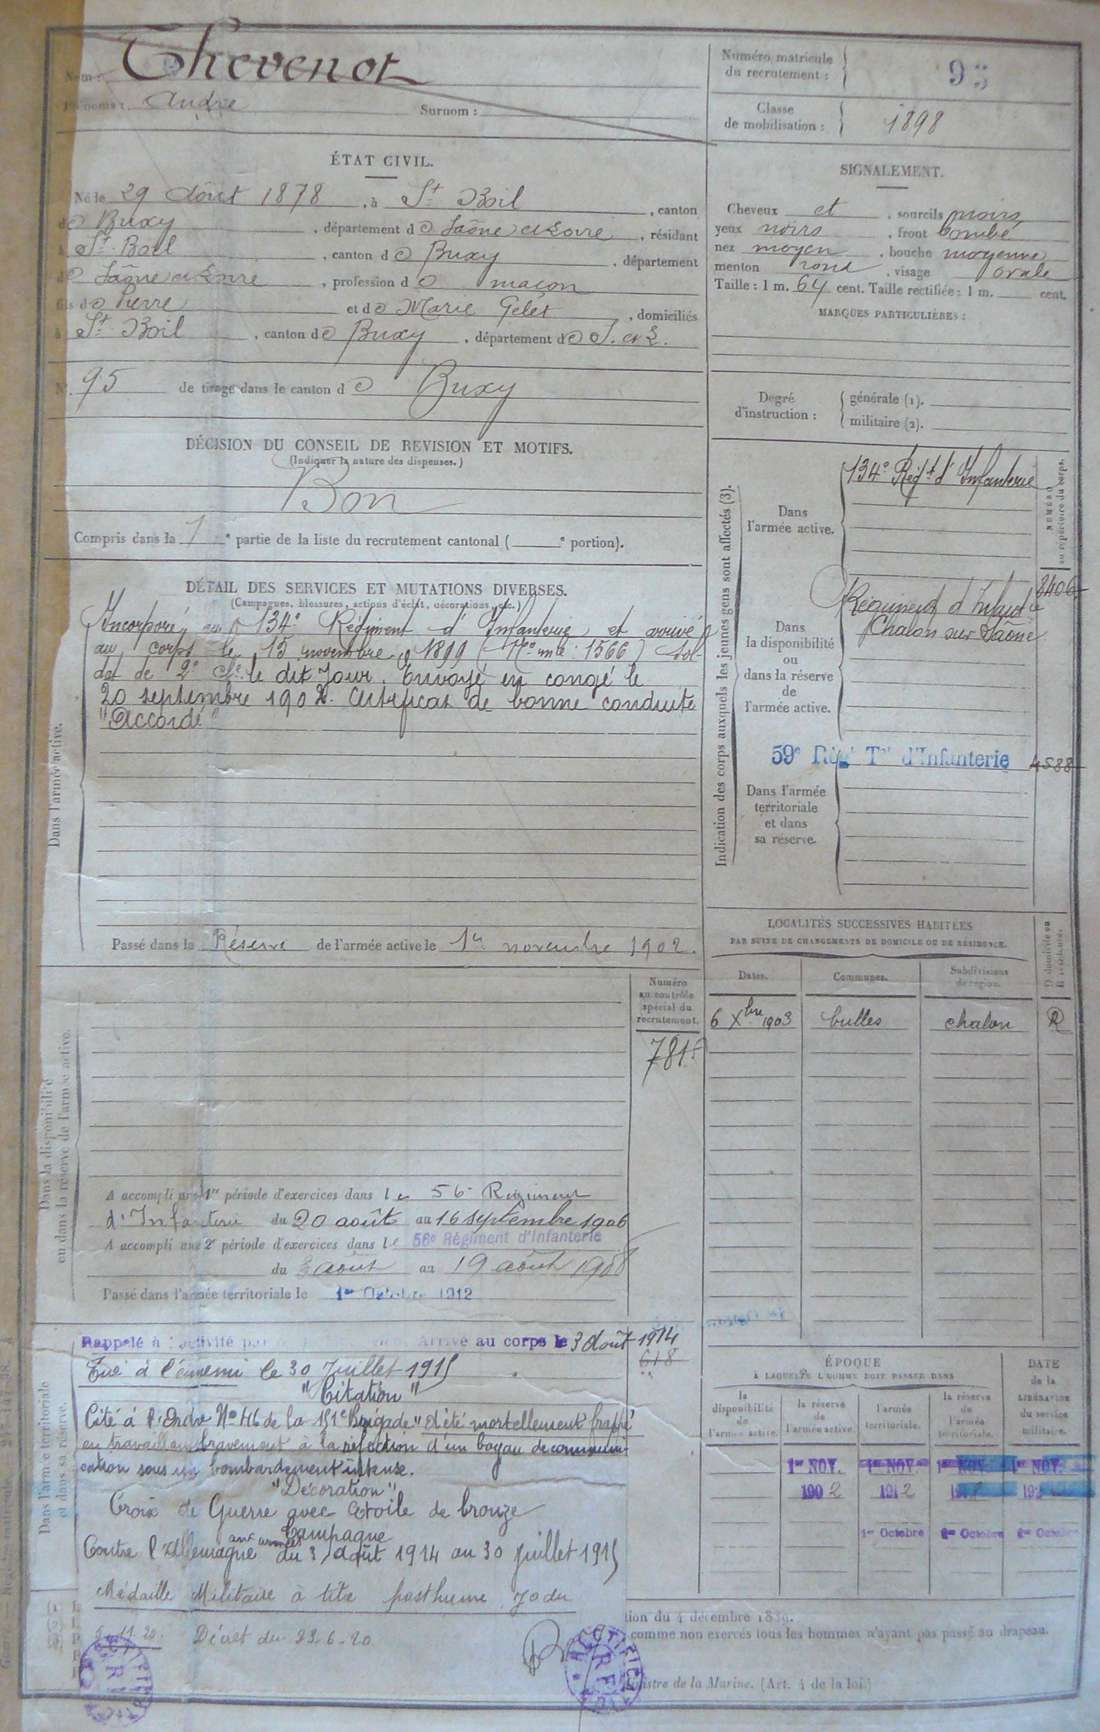 Nom : Thevenot
Prénoms : André Surnom :
Numéro matricule du recrutement : 95
Classe de mobilisation : 1898
ÉTAT CIVIL.
Né le 29 Août 1878, à St Boil, canton
de Buxy, département de Saône et Loire, résidant
à St Boil, canton de Buxy, département
de Saône et Loire, profession de maçon
fils de Pierre et de Marie Gelet, domiciliés
à St Boil, canton de Buxy, département de S. et L.
N° 95 de tirage dans le canton de Buxy
SIGNALEMENT.
Cheveux et sourcils noirs
yeux noirs, front bombé
nez moyen, bouche moyenne
menton rond, visage ovale
Taille : 1 m. 64 cent. Taille rectifiée : 1 m. cent.
MARQUES PARTICULIÈRES :
Degré d'instruction : générale (1).
militaire (2).
DÉCISION DU CONSEIL DE REVISION ET MOTIFS.
(Indiquer la nature des dispenses.)
Bon
Compris dans la 1e partie de la liste du recrutement cantonal ( e portion).
DÉTAIL DES SERVICES ET MUTATIONS DIVERSES.
(Campagnes, blessures, actions d'éclat, décorations, etc.)
Dans l'armée active.
Incorporé au 134e Régiment d'Infanterie et arrivé
au corps le 15 novembre 1899 (No mle 1566) Sol-
dat de 2e Cl. le dit jour. Envoyé en congé le
20 septembre 1902. Certificat de bonne conduite
"Accordé"
Passé dans la Réserve de l'armée active le 1er novembre 1902.
Indication des corps auxquels les jeunes gens sont affectés (3).
NUMÉRO au répertoire du corps.
Dans l'armée active.
134e Régt d'Infanterie
Dans la disponibilité ou dans la réserve de l'armée active.
Régiment d'Infie
Chalon sur Saône
59e Régt Tal d'Infanterie 4588
Dans l'armée territoriale et dans sa réserve.
LOCALITÉS SUCCESSIVES HABITÉES
PAR SUITE DE CHANGEMENTS DE DOMICILE OU DE RÉSIDENCE.
Dates. Communes. Subdivisions de région. D domicile ou R résidence.
6 Xbre 1903 Culles Chalon R
Dans la disponibilité ou dans la réserve de l'armée active.
Numéro au contrôle spécial du recrutement.
781
A accompli une 1re période d'exercices dans le 56e Régiment
d'Infanterie du 20 août au 16 septembre 1906
A accompli une 2e période d'exercices dans le 56e Régiment d'Infanterie
du août au 19 août 1908
Passé dans l'armée territoriale le 1er Octobre 1912
Dans l'armée territoriale et dans sa réserve.
Rappelé à l'activité Arrivé au corps le 3 août 1914
618
Tué à l'ennemi le 30 Juillet 1915
"Citation"
Cité à l'Ordre No 46 de la 151e Brigade "A été mortellement frappé
en travaillant bravement à la réfection d'un boyau de communi-
cation sous un bombardement intense.
"Décoration"
Croix de Guerre avec étoile de bronze
Campagne
Contre l'Allemagne aux armées du 3 Août 1914 au 30 Juillet 1915
Médaille Militaire à titre posthume J.O. du
11.20. Décret du 22-6-20
ÉPOQUE
À LAQUELLE L'HOMME DOIT PASSER DANS
la disponibilité de l'armée active. la réserve de l'armée active. l'armée territoriale. la réserve de l'armée territoriale. DATE de la LIBÉRATION du service militaire.
1er NOV. 1er NOV. 1er NOV. 1er NOV.
1902 1912
1er Octobre 1er Octobre 1er Octobre
tion du 4 décembre 1889.
comme non exercés tous les hommes n'ayant pas passé au drapeau.
istre de la Marine. (Art. 4 de la loi.)